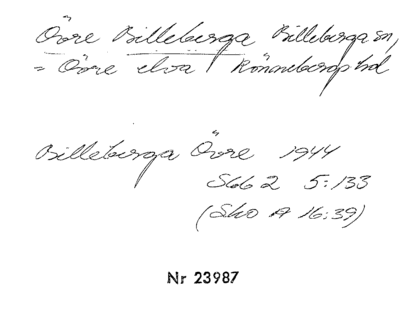 Övre Billeberga Billeberga sn,
= Övre elva Rönnebergs hd
Billeberga Övre 1944
SGG 2 5:133
(Sko A 16:39)
Nr 23987